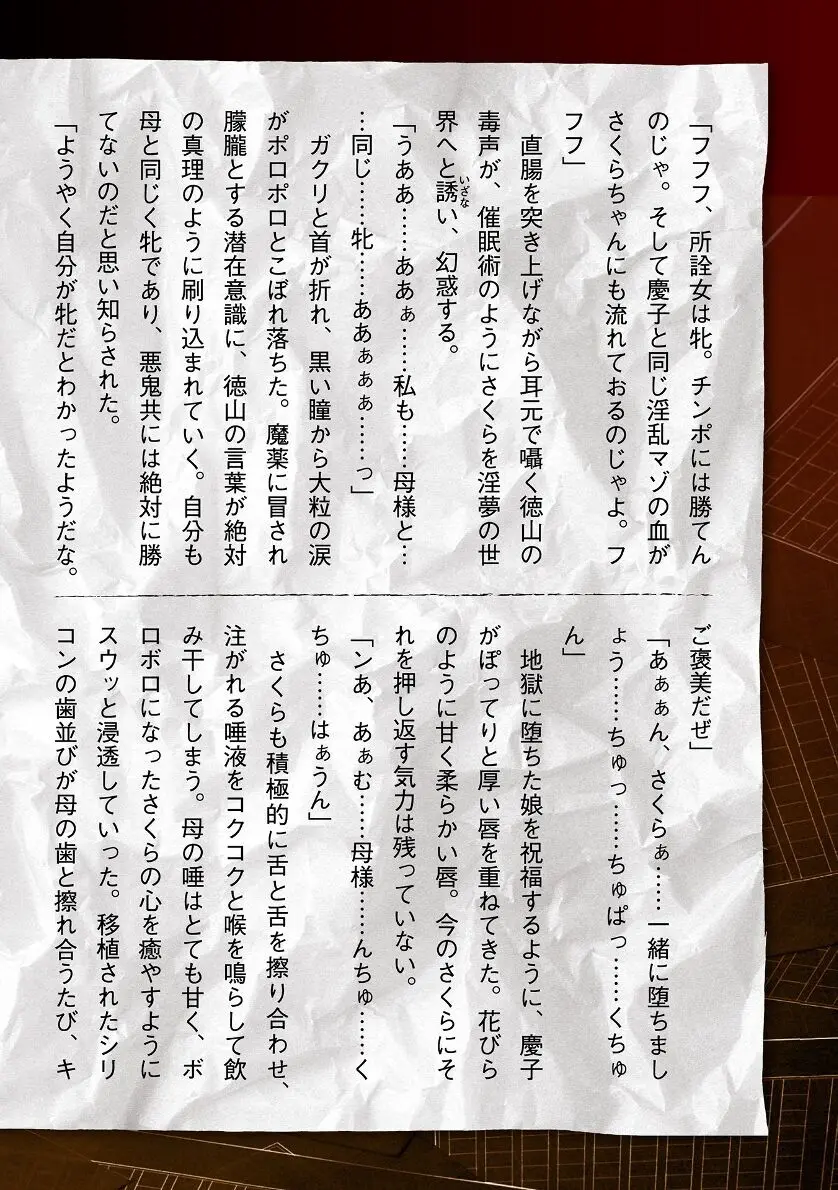 「フフフ、所詮女は牝。チンポには勝てん
のじゃ。そして慶子と同じ淫乱マゾの血が
さくらちゃんにも流れておるのじゃよ。フ
フフ」
　直腸を突き上げながら耳元で囁く徳山の
毒声が、催眠術のようにさくらを淫夢の世
界へと誘い、幻惑する。
「うああ……ああぁ……私も……母様と…
…同じ……牝……ああぁぁぁ……っ」
　ガクリと首が折れ、黒い瞳から大粒の涙
がポロポロとこぼれ落ちた。魔薬に冒され
朦朧とする潜在意識に、徳山の言葉が絶対
の真理のように刷り込まれていく。自分も
母と同じく牝であり、悪鬼共には絶対に勝
てないのだと思い知らされた。
「ようやく自分が牝だとわかったようだな。
ご褒美だぜ」
「あぁぁん、さくらぁ……一緒に堕ちまし
ょう……ちゅっ……ちゅぱっ……くちゅ
ん」
　地獄に堕ちた娘を祝福するように、慶子
がぽってりと厚い唇を重ねてきた。花びら
のように甘く柔らかい唇。今のさくらにそ
れを押し返す気力は残っていない。
「ンあ、あぁむ……母様……んちゅ……く
ちゅ……はぁうん」
　さくらも積極的に舌と舌を擦り合わせ、
注がれる唾液をコクコクと喉を鳴らして飲
み干してしまう。母の唾はとても甘く、ボ
ロボロになったさくらの心を癒やすように
スウッと浸透していった。移植されたシリ
コンの歯並びが母の歯と擦れ合うたび、キ